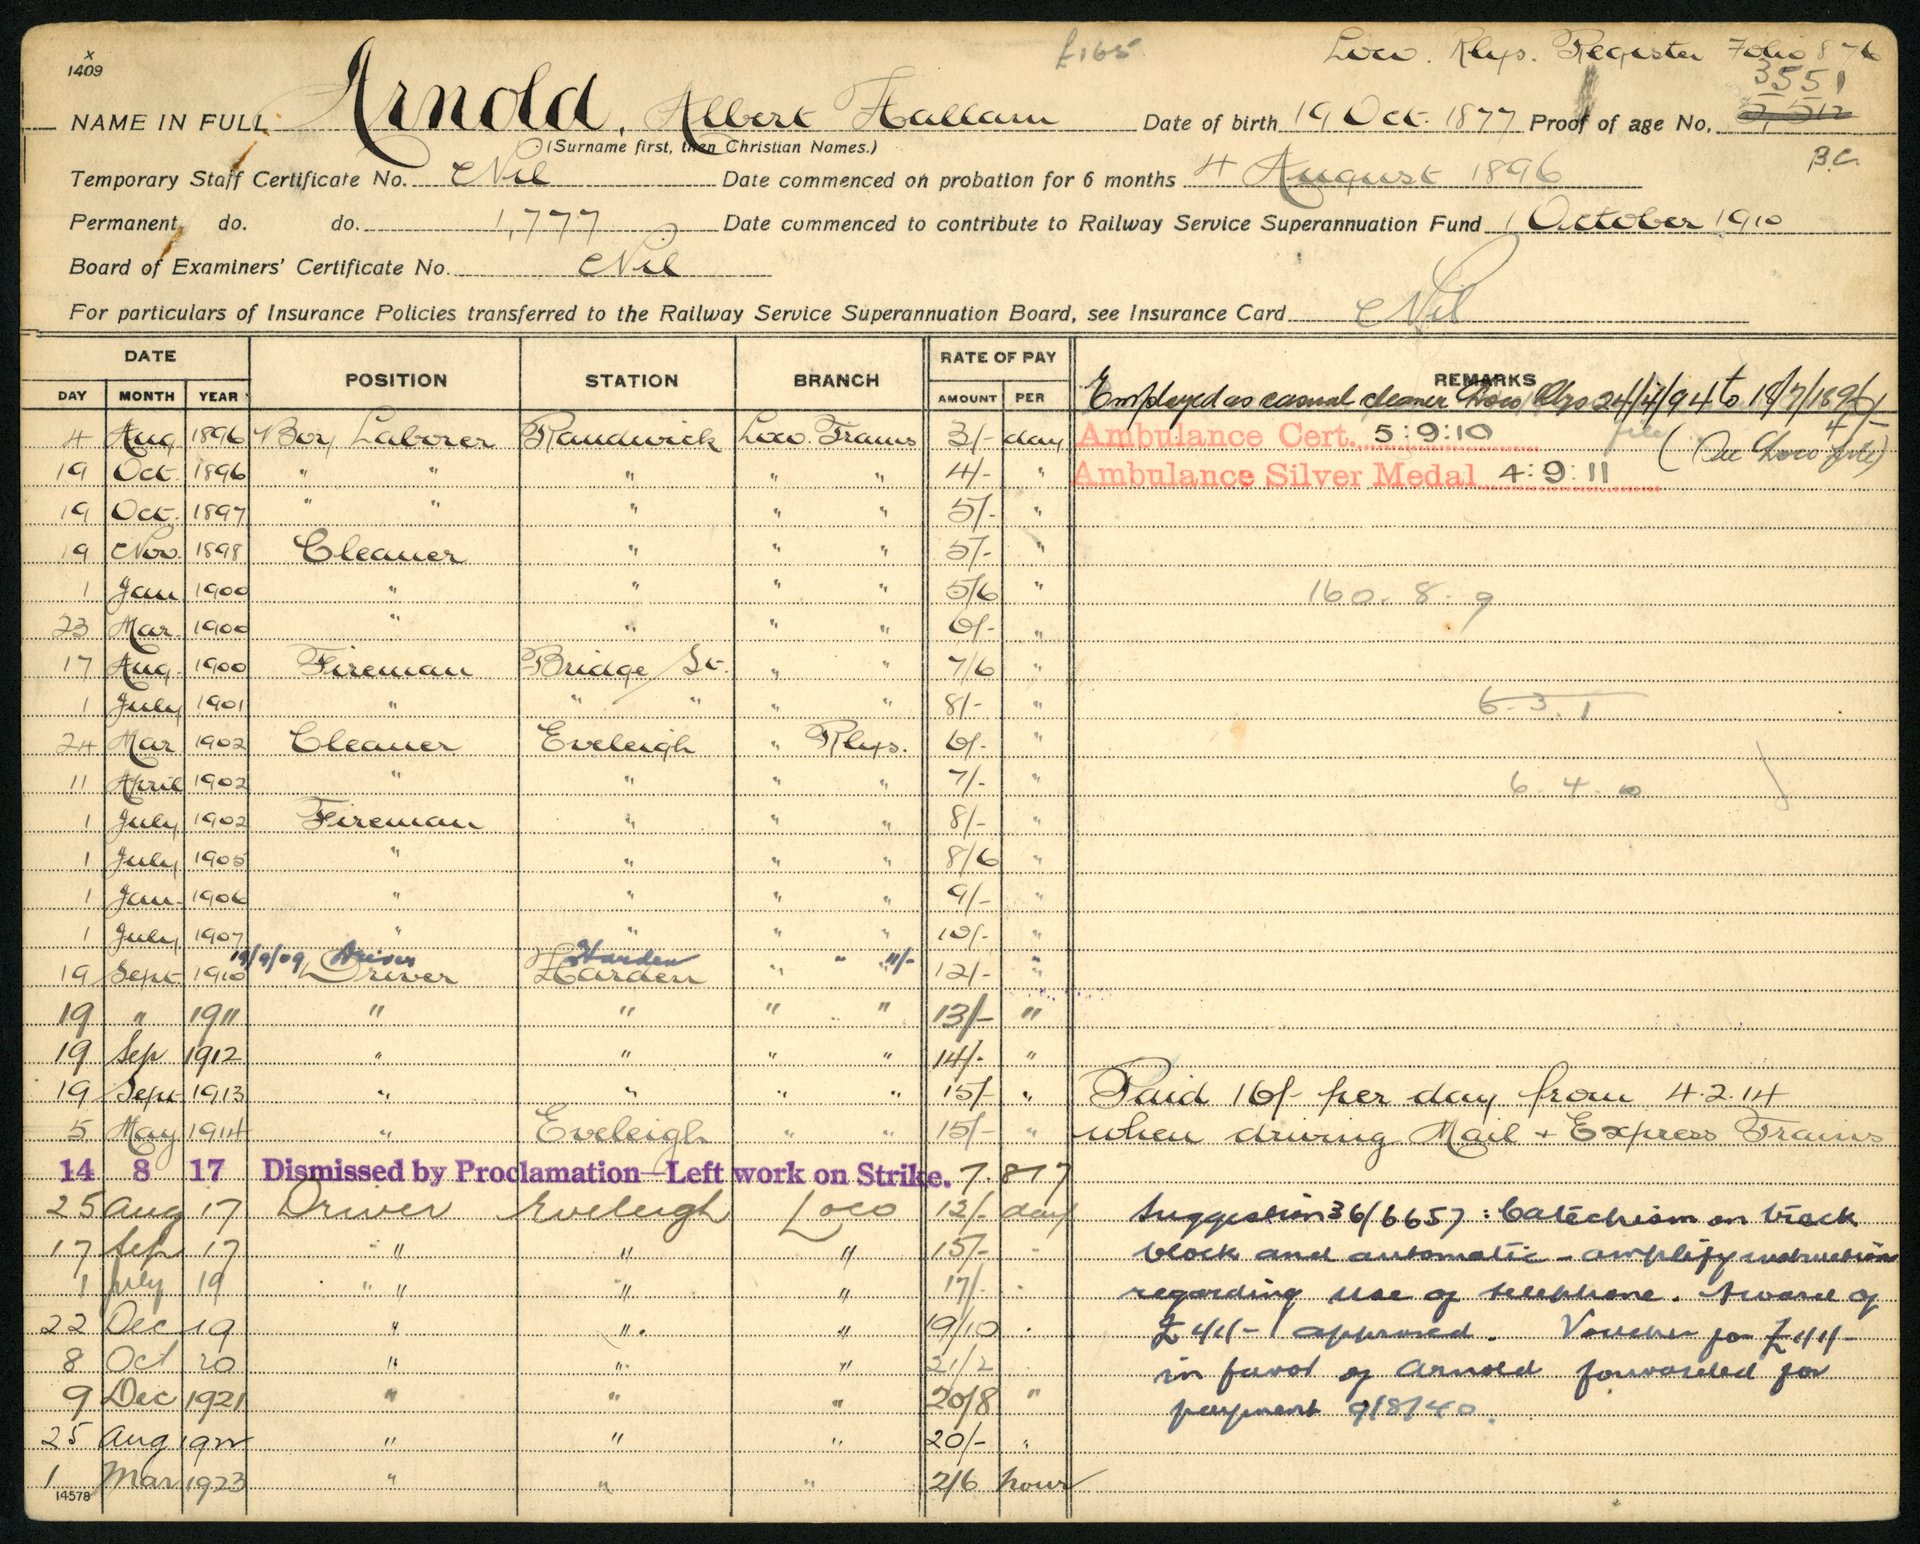 x
1409
£165
Loco. Rlys. Register Folio 876
3551
NAME IN FULL Arnold, Albert Hallam Date of birth 19 Oct. 1877 Proof of age No.
(Surname first, then Christian Names.)
B.C.
Temporary Staff Certificate No. Nil Date commenced on probation for 6 months 4 August 1896
Permanent do. do. 1,777 Date commenced to contribute to Railway Service Superannuation Fund 1 October 1910
Board of Examiners' Certificate No. Nil
For particulars of Insurance Policies transferred to the Railway Service Superannuation Board, see Insurance Card Nil
DATE POSITION STATION BRANCH RATE OF PAY REMARKS
DAY MONTH YEAR AMOUNT PER
Employed as casual cleaner Loco Rlys 24/7/94 to 18/7/1896
4 Aug 1896 Boy Laborer Randwick Loco. Trams 3/- day Ambulance Cert. 5:9:10
(See Loco file)
19 Oct. 1896 " " " " " 4/- " Ambulance Silver Medal 4:9:11
19 Oct. 1897 " " " " " 5/- "
19 Nov. 1898 Cleaner " " " 5/- "
1 Jan 1900 " " " " 5/6 " 160. 8. 9
23 Mar. 1900 " " " " 6/- "
17 Aug. 1900 Fireman Bridge St. " " 7/6 "
1 July 1901 " " " " " 8/- " 6. 3. 1
24 Mar 1902 Cleaner Eveleigh " Rlys. 6/- "
11 April 1902 " " " " 7/- " 6. 4. 0
1 July 1902 Fireman " " " 8/- "
1 July 1905 " " " " 8/6 "
1 Jan. 1906 " " " " 9/- "
1 July 1907 " " " " 10/- "
19/9/09 Driver Harden " 11/-
19 Sept. 1910 Driver Harden " 12/- "
19 " 1911 " " " " 13/- "
19 Sep 1912 " " " " 14/- "
19 Sept 1913 " " " " 15/- " Paid 16/- per day from 4.2.14
5 May 1914 " Eveleigh " " 15/- " when driving Mail + Express Trains
14 8 17 Dismissed by Proclamation—Left work on Strike. 7.8.17
25 Aug 17 Driver Eveleigh Loco 12/- day Suggestion 36/6657 : Catechism on track
17 Sep 17 " " " 15/- " block and automatic - amplify instruction
1 July 19 " " " " 17/- " regarding use of telephone. Award of
22 Dec 19 " " " 19/10 " £4/4/- approved. Voucher for £4/4/-
8 Oct 20 " " " 21/2 in favor of Arnold forwarded for
9 Dec 1921 " " " 20/8 " payment 9/8/40.
25 Aug 1922 " " " 20/- "
1 Mar 1923 " " " 2/6 hour
14578